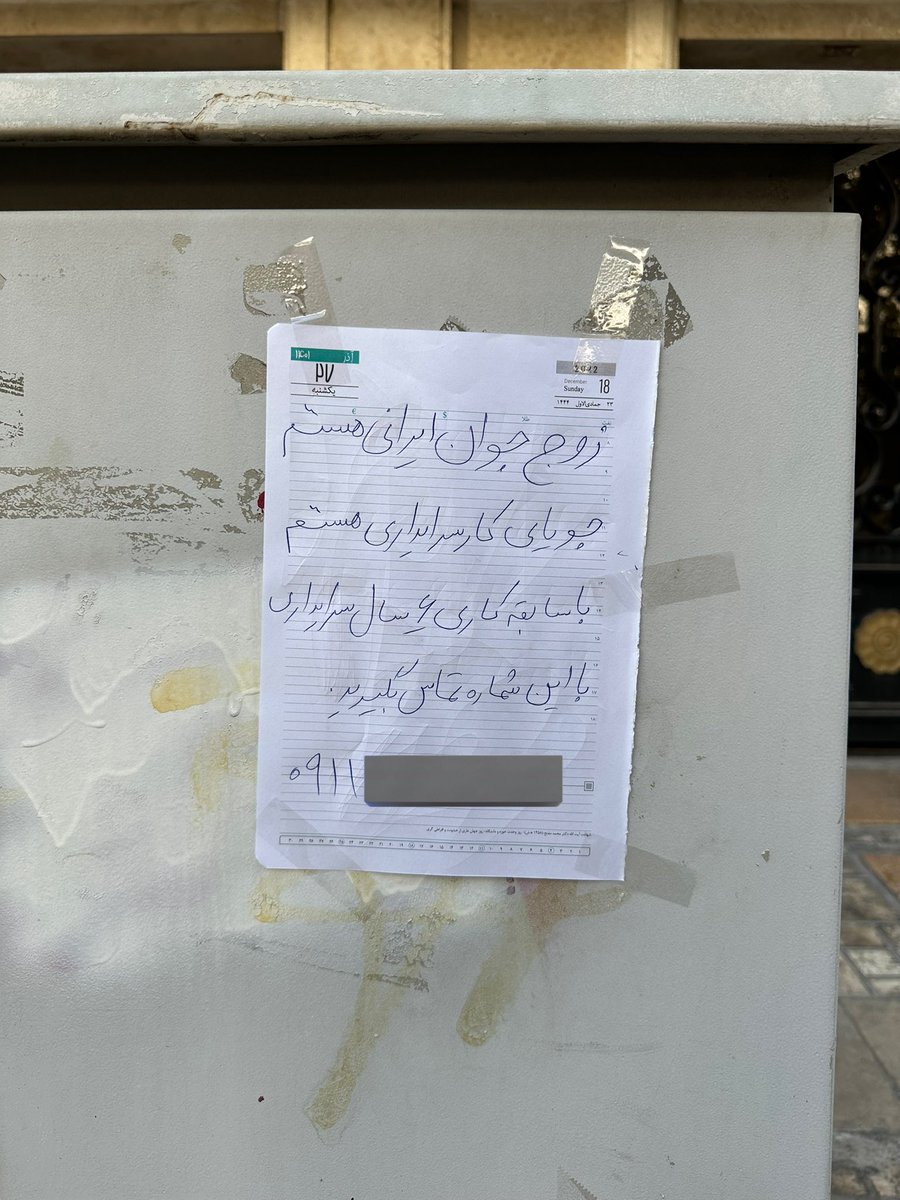 آذر ۱۴۰۱
۲۷
یکشنبه
2022
December
Sunday 18
۲۳ جمادی‌الاول ۱۴۴۴
زوج جوان ایرانی هستم
جویای کار سرایداری هستم
با سابقه کاری ۶ سال سرایداری
با این شماره تماس بگیرید.
۰۹۱۱